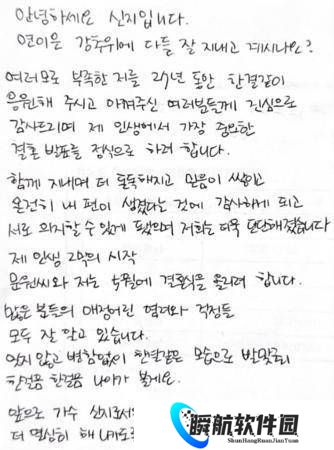 안녕하세요 신지입니다.
연이은 강추위에 다들 잘 지내고 계시나요?
여러모로 부족한 저를 27년 동안 한결같이
응원해 주시고 아껴주신 여러분들께 진심으로
감사드리며 제 인생에서 가장 중요한
결혼 발표를 정식으로 하려 합니다.
함께 지내며 더 돈독해지고 믿음이 쌓이고
온전히 내 편이 생겼다는 것에 감사하게 되고
서로 의지할 수 있게 됐으며 저희는 더욱 단단해졌습니다
제 인생 2막의 시작
문원씨와 저는 5월에 결혼식을 올리려 합니다.
많은 분들의 애정어린 염려와 걱정들
모두 잘 알고 있습니다.
잊지 않고 변함없이 한결같은 모습으로 발맞춰
한걸음 한걸음 나아가 볼게요.
앞으로 가수 신지로서
더 열심히 해 나가도록
瞬航软件园
ShunHangRuanJianYuan